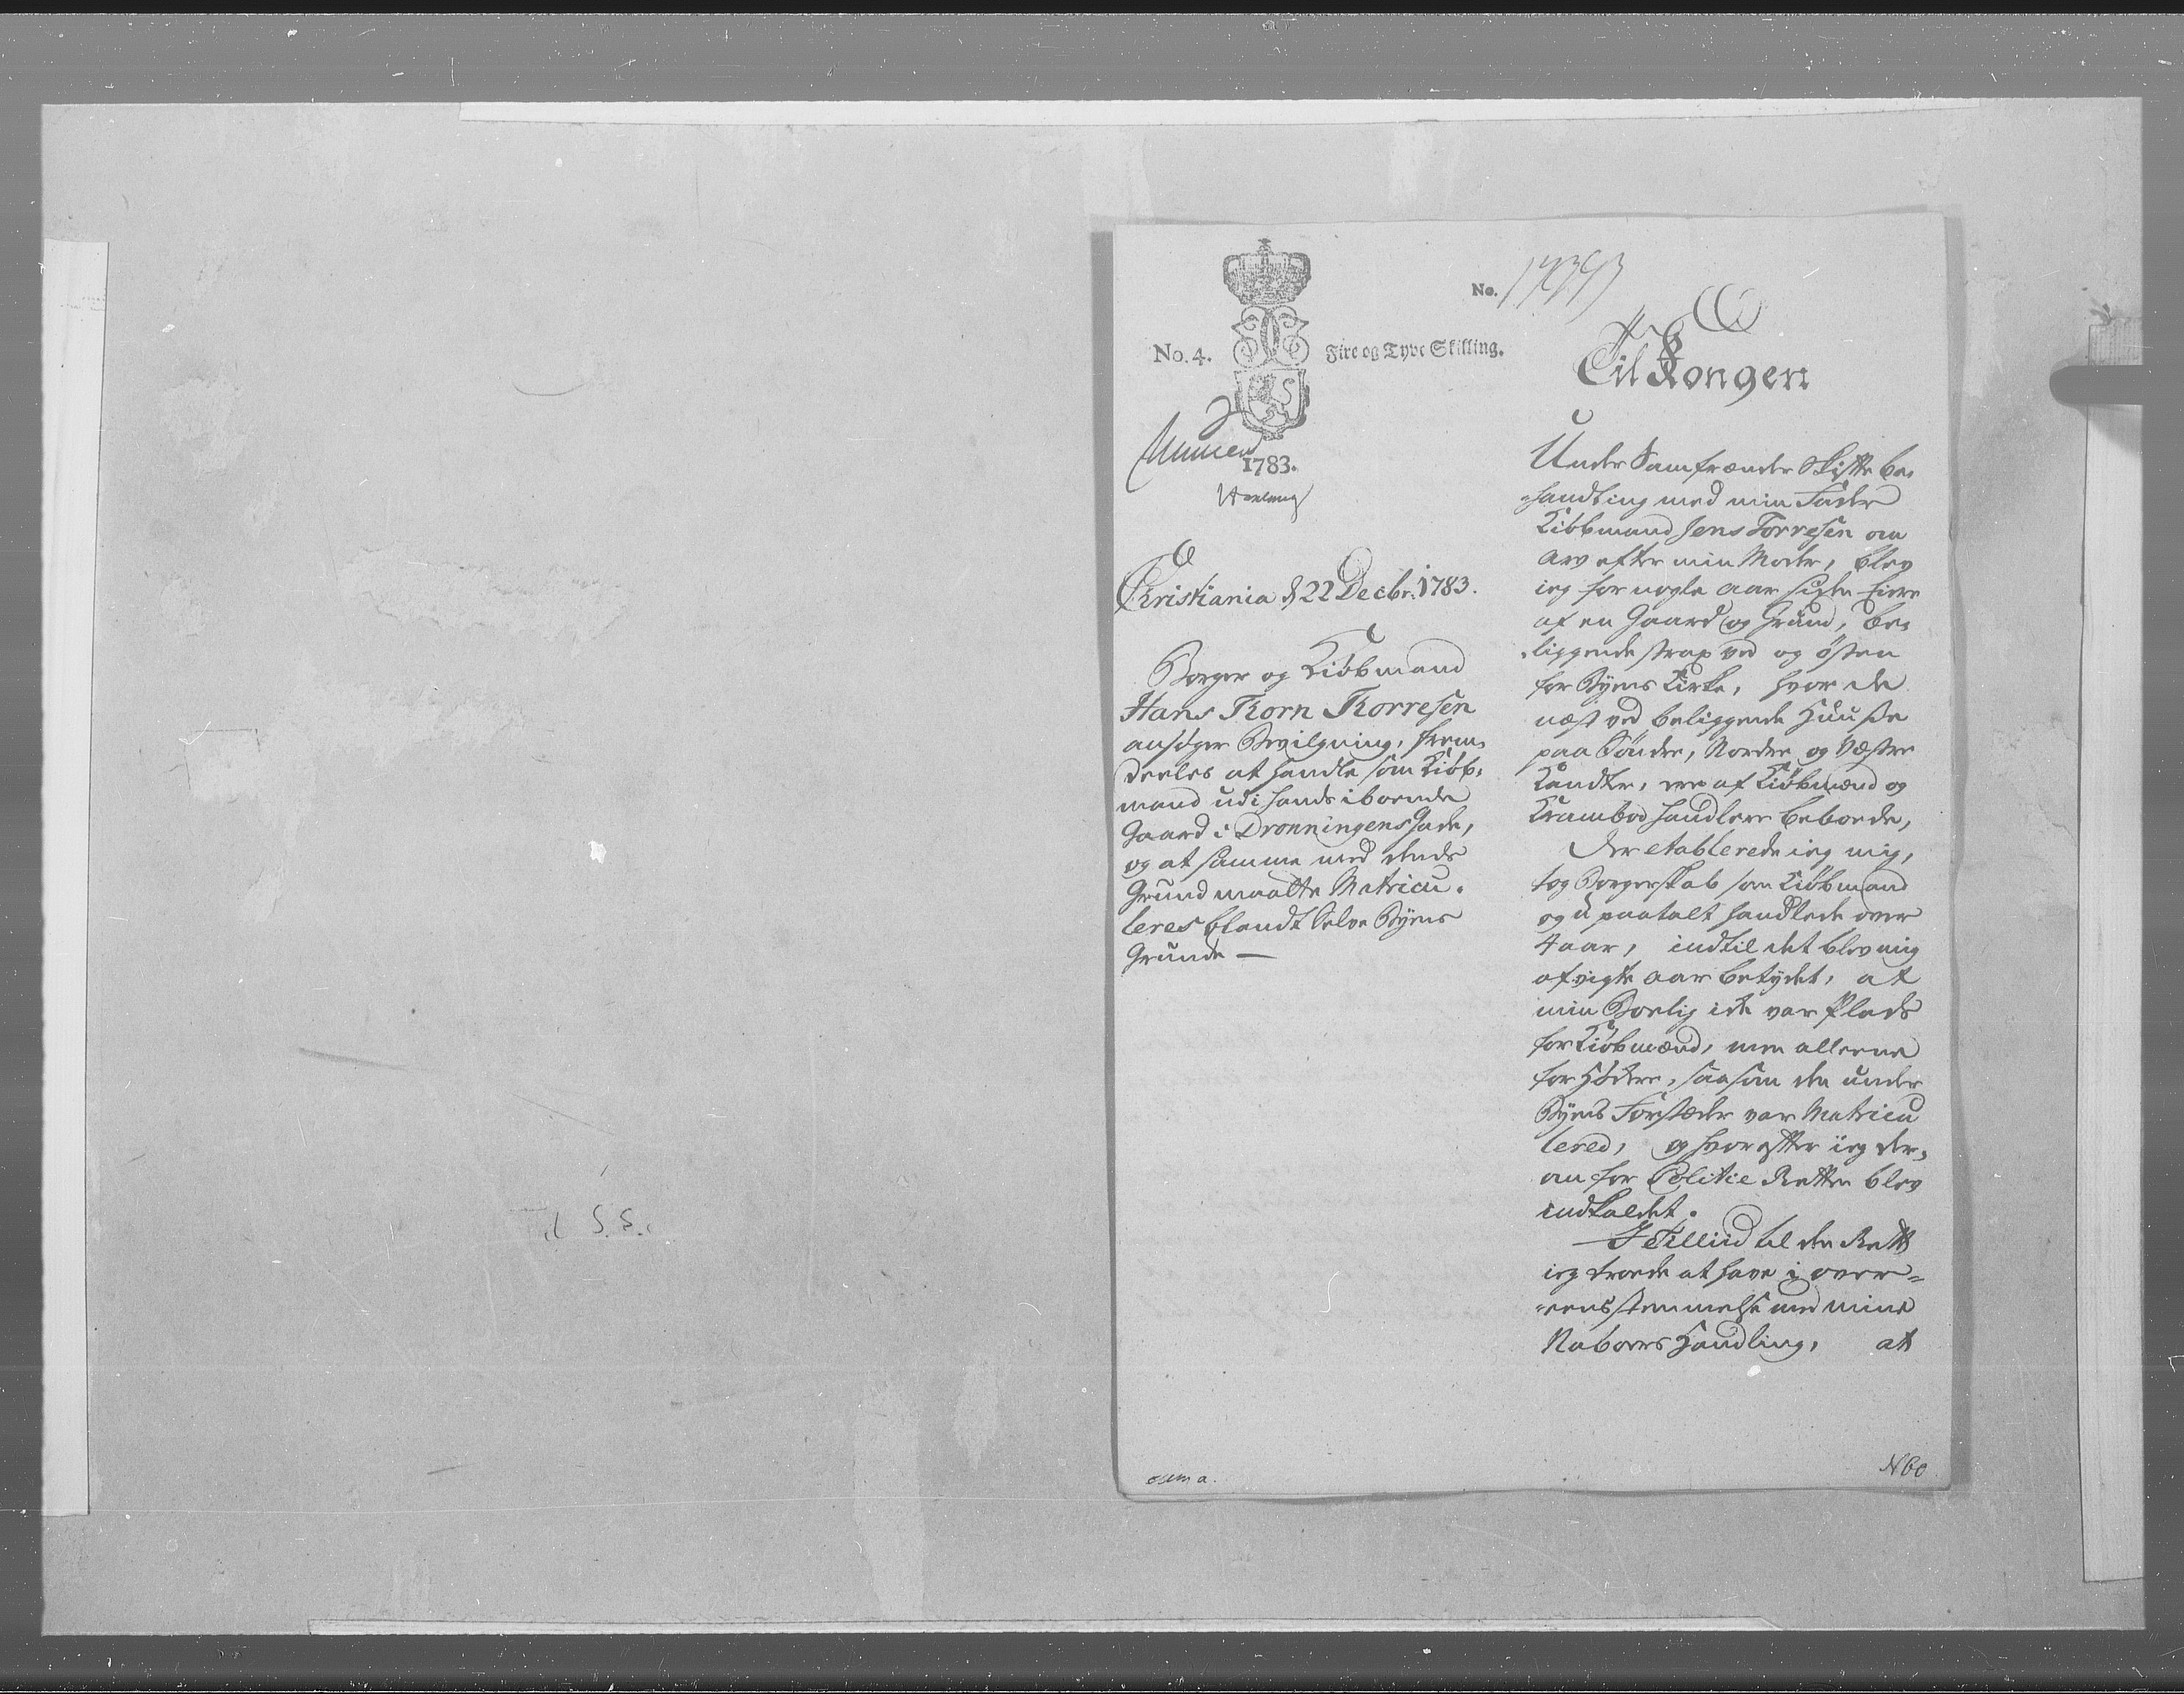 No.
No. 4. Fire og Tyve Skilling.
1783.
Christiania d 22 Decbr. 1783.
Borger og Kiøbmand
Hans Thorn Thorresen
ansøger Bevilgning, frem-
deeles at handle som Kiøb-
mand udi hands iboende
Gaard i Dronningens Gade,
og at samme med dends
Grund maatte Matricu-
leres blandt Selve Byens
Grunde —
Til Kongen
Under Samfrænde Skifte be-
handling med min Fader
Kiøbmand Jens Torresen om
Arv efter min Moder, blev
ieg for nogle aar siden Eiere
af en Gaard og Grund, be-
liggende strax ved og østen
for Byens Kirke, hvor de
næst ved beliggende Huuse
paa Søndre, Nordre og Væstre
Kandter, ere af Kiøbmænd og
Krambod handlere beboede,
Der etablerede ieg mig,
tog Borgerskab som Kiøbmand
og upaatalt handlede over
4 aar, indtil det blev mig
afvigte aar betydet, at
min Boelig ikke var Plads
for Kiøbmænd, men alleene
for Høkere, saasom den under
Byens Forstæder var Matricu
lered, og hvorefter ieg der-
om for Politie Retten blev
indkaldet.
I Tilliid til den Rett
ieg troede at have i over-
eensstemmelse med mine
Naboers Handling, at